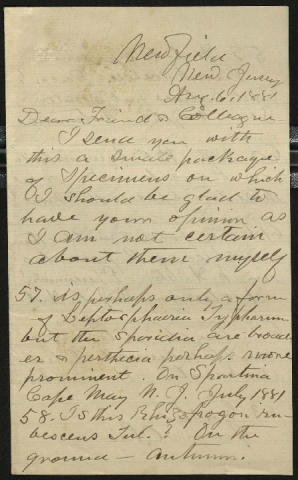 Newfield
New Jersey
Aug. 6. 1881
Dear Friend & Colleague
I send you with
this a small package
of Specimens on which
I should be glad to
have your opinion as
I am not certain
about them myself
57. is perhaps only a form
of Leptosphaeria Typharum
but the Sporidia are broad
er & perthecia perhaps more
prominent. On Spartina
Cape May N. J. July 1881
58. Is this Rhizopogon ru-
bescens Tul.? On the
ground – autumn.